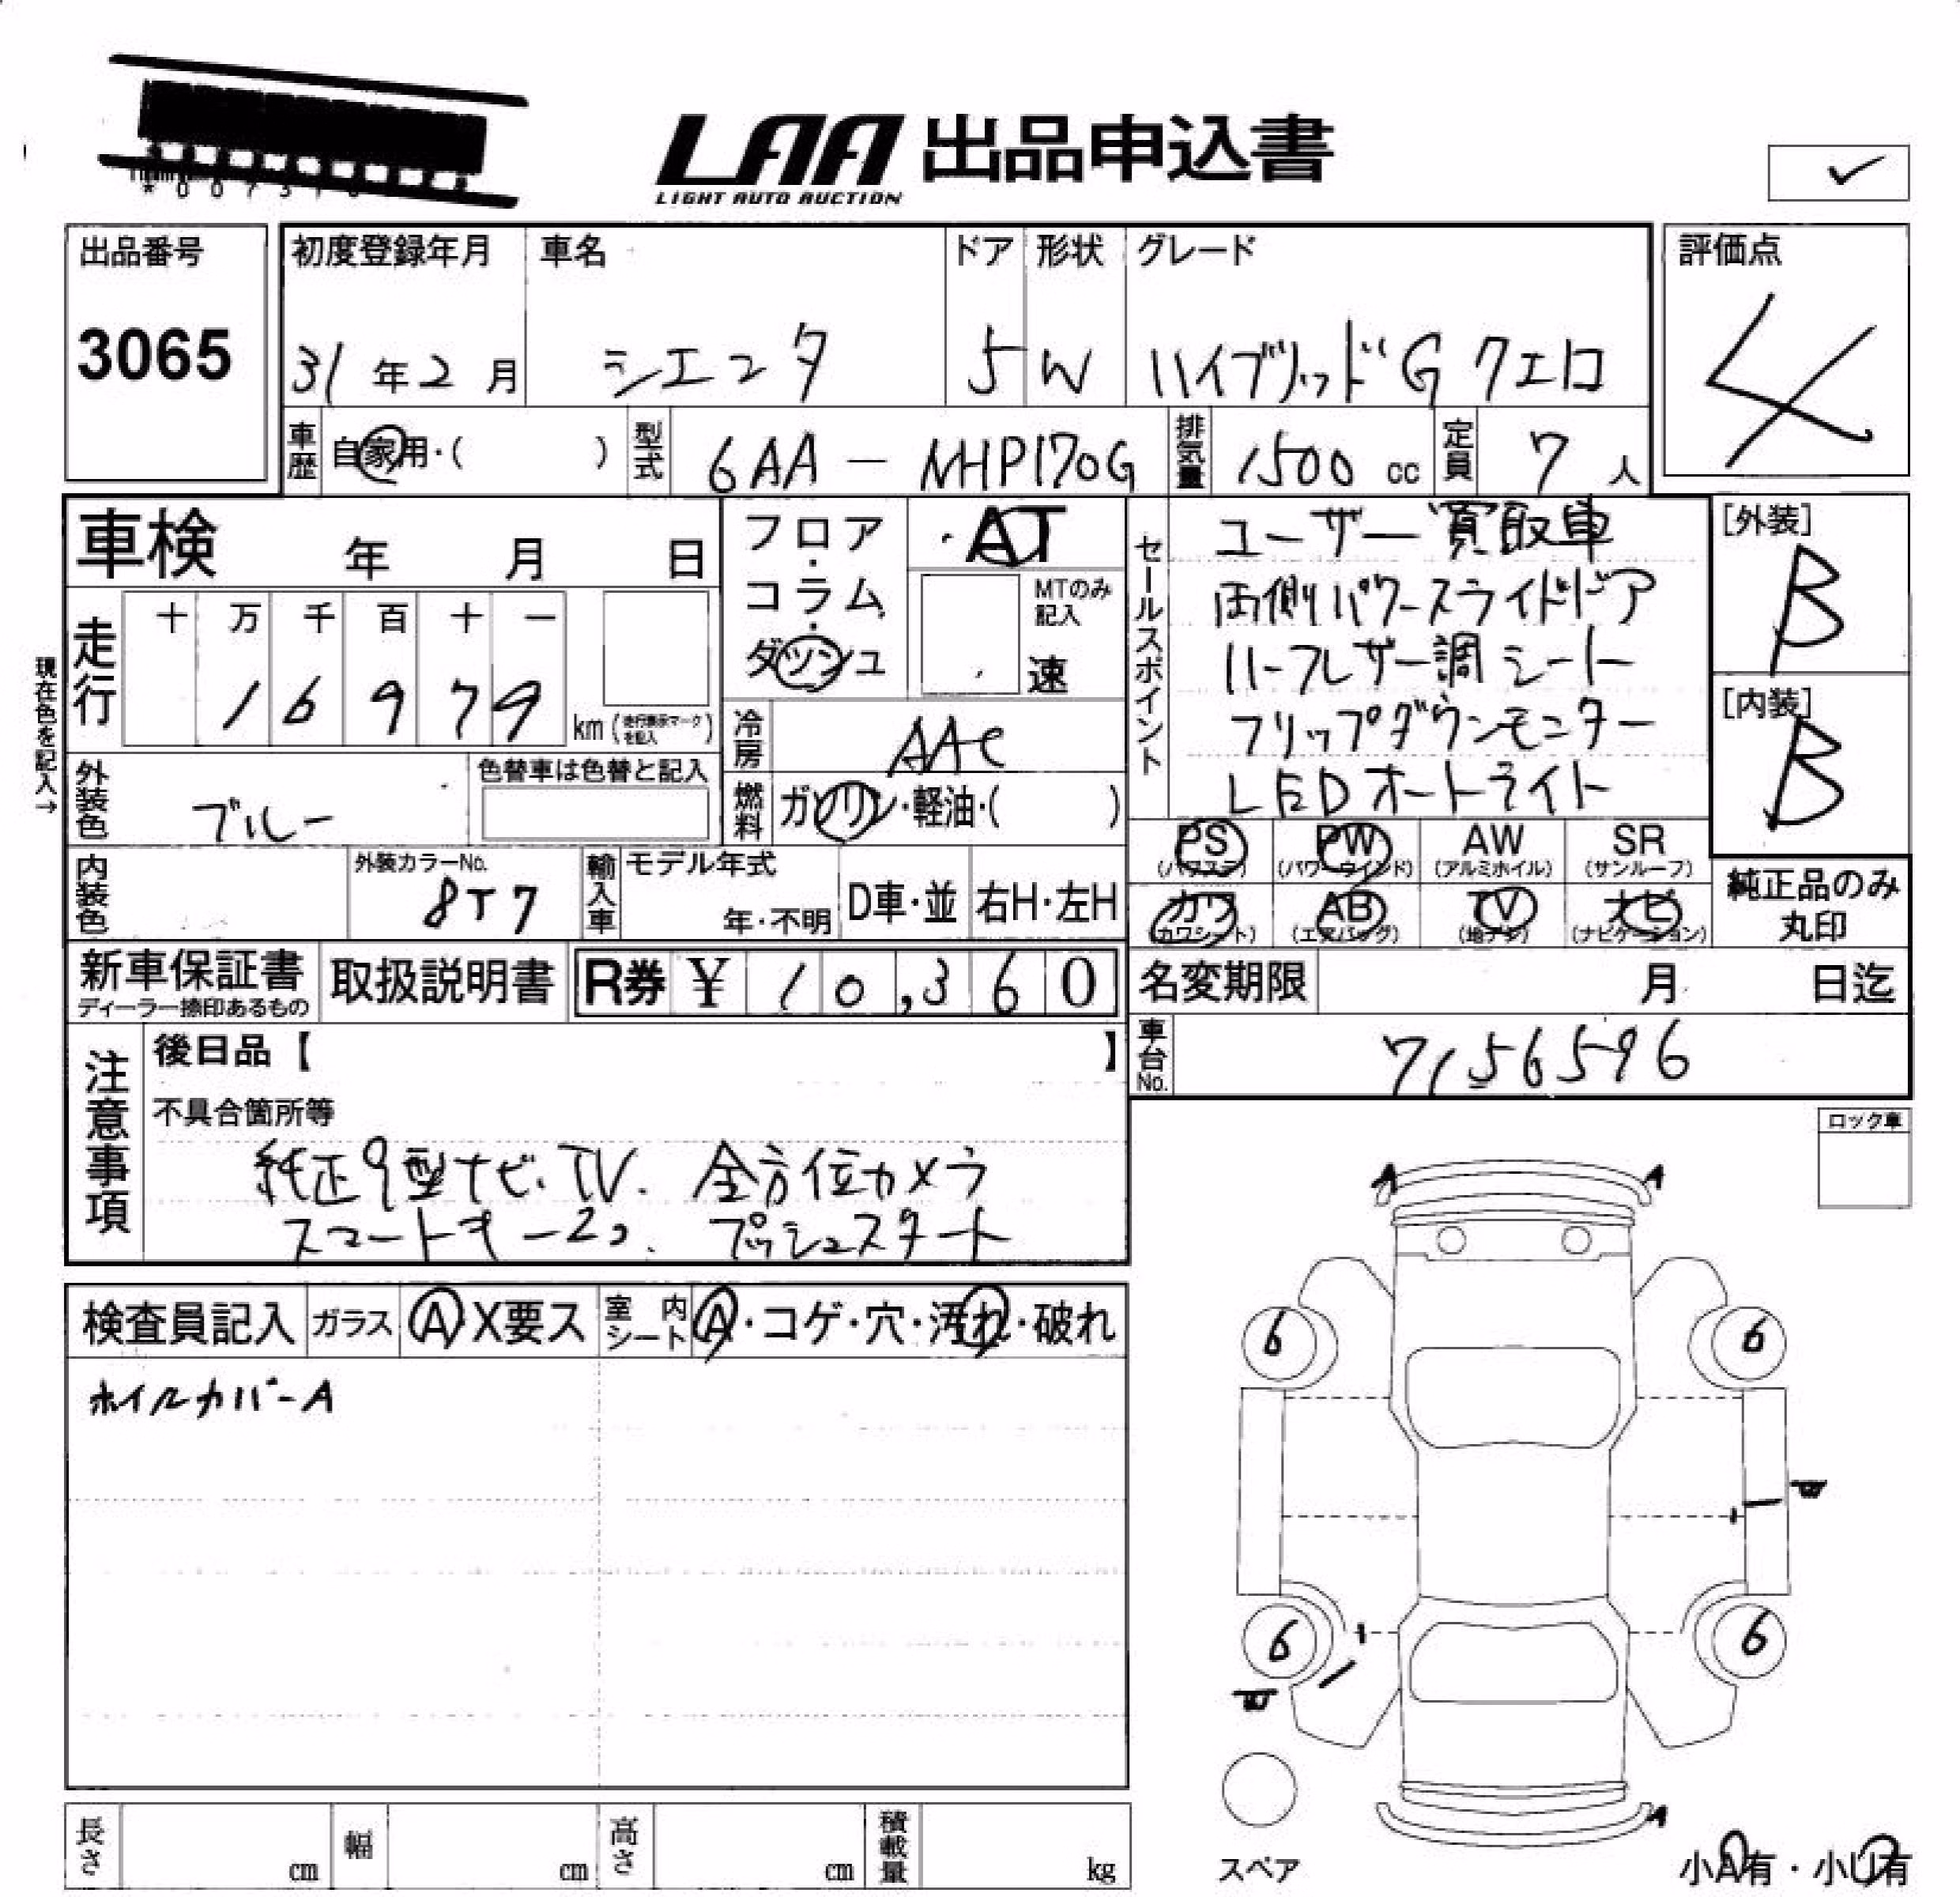 LAA 出品申込書
LIGHT AUTO AUCTION
✓
出品番号 初度登録年月 車名 ドア 形状 グレード 評価点
3065 31年2月 シエンタ 5 W ハイブリッドG クエロ 4
車歴 自家用・( ) 型式 6AA-NHP170G 排気量 1500cc 定員 7人
車検 年 月 日
フロア・コラム・ダッシュ
AT
MTのみ記入
速
セールスポイント
ユーザー買取車
両側パワースライドドア
ハーフレザー調シート
フリップダウンモニター
LEDオートライト
[外装]
B
[内装]
B
現在色を記入→
走行 十 万 千 百 十 一
16979 km (走行表示マークを記入)
冷房 AAC
外装色 ブルー 色替車は色替と記入
燃料 ガソリン・軽油・( )
内装色 外装カラーNo. 8T7 輸入車 モデル年式 年・不明 D車・並 右H・左H
PS (パワステ) PW (パワーウインド) AW (アルミホイル) SR (サンルーフ)
カワ (カワシート) AB (エアバッグ) TV (地デジ) ナビ (ナビゲーション)
純正品のみ丸印
新車保証書 ディーラー捺印あるもの 取扱説明書 R券 ¥ 10,360
名変期限 月 日迄
車台No. 7156596
注意事項
後日品【 】
不具合箇所等
純正9型ナビ.TV. 全方位カメラ
スマートキー2コ. プッシュスタート
ロック車
検査員記入 ガラス A X要ス 室内シート A・コゲ・穴・汚れ・破れ
ホイルカバーA
A A
6 6
W
6 6
W
A
スペア
小A有・小U有
長さ cm 幅 cm 高さ cm 積載量 kg